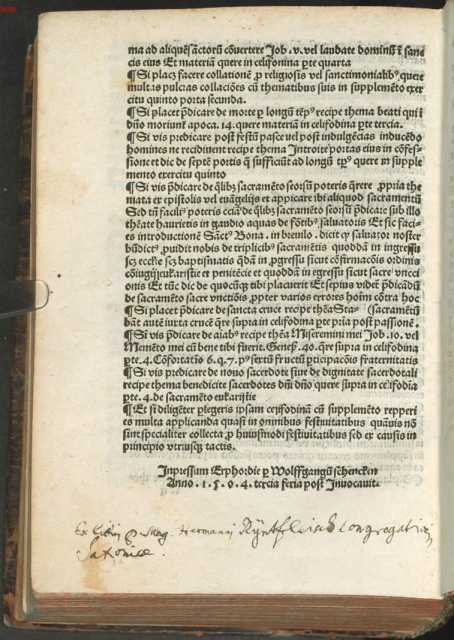 ma ad aliquē sāctorū cōvertere Job .v. vel laudate dominū ī sanc
cis eius Et materiā quere in celifonina ꝑte quarta
¶ Si placz facere collationē ꝓ religiosis vel sanctimonialibꝰ quere
multas pulcras collaciōes cū thematibus suis in supplemēto exer
citu quinto porta secunda.
¶ Si placet p̄dicare de morte ꝑ longū tēpꝰ recipe thema beati qui ī
dn̄o moriunt apoca. 14. quere materiā in celifodina ꝑte tercia.
¶ Si vis predicare post festū pasce vel post indulgēcias inducēdo
homines ne recidinent recipe thema Introite portas eius in cōfes-
sione et dic de septē portis q̄ sufficiūt ad longū tꝑꝰ quere in supple
mento exercitu quinto
¶ Si vis p̄dicare de q̄libꝫ sacramēto seorsū poteris q̄rere ꝓpria the
mata ex epistolis vel euāgelijs et applicare ibi aliquod sacramentū
Sed tn̄ faciliꝰ poteris eciā de q̄libꝫ sacramēto seorsū p̄dicare sub illo
thēate haurietis in gaudio aquas de fōtibꝰ saluatoris Et sic faci-
es introductionē Sāctꝰ Bona. in breuilo. dicit ꝙ saluator noster
ꝓuidit nobis de triplicibꝰ sacramētis quoddā in ingressu
baptismatis q̄dā in ꝓgressu sicut cōfirmacōis ordinis
cōiugij eukaristie et penitēcie et quoddā in egressu sicut sacre vncci
onis Et tūc dic de quocūqꝫ tibi placuerit Et sepius videt̄ p̄dicādū
de sacramēto sacre vnctiōis ꝓpter varios errores hoīm cōtra hoc
¶ Si placet p̄dicare de sancta cruce recipe thēa Sta- (sacramētū
bāt autē iuxta crucē q̄re supra in celifodina ꝑte pria post passionē.
¶ Si vis p̄dicare de aīabꝰ recipe thēa Miseremini mei Job .10. vel
Memēto mei cū bene tibi fuerit. Geneꝭ. 40. q̄re supra in celifodina
ꝑte. 4. Cōfortatio 6. q. 7. ꝑꝰ sextū fructū ꝑticipacōis fraternitatis
¶ Si vis predicare de nouo sacerdote siue de dignitate sacerdotali
recipe thema benedicite sacerdotes dn̄i dn̄o quere supra in celifodia
ꝑte. 4. de sacramēto eukaristie
¶ Et si diligēter ꝑlegeris ipsam celifodinam cū supplemēto repperi
es multa applicanda quasi in omnibus festiuitatibus quāuis nō
sint specialiter collecta ꝓ huiusmodi festiuitatibus sed ex causis in
principio vtriusqꝫ tactis.
Inpressum Erphordie ꝑ Wolffgangū schencken
Anno .1.5.04. tercia feria post Inuocauit.
Ex libris Mag. Hermanni Congregationi
Saxoniae.